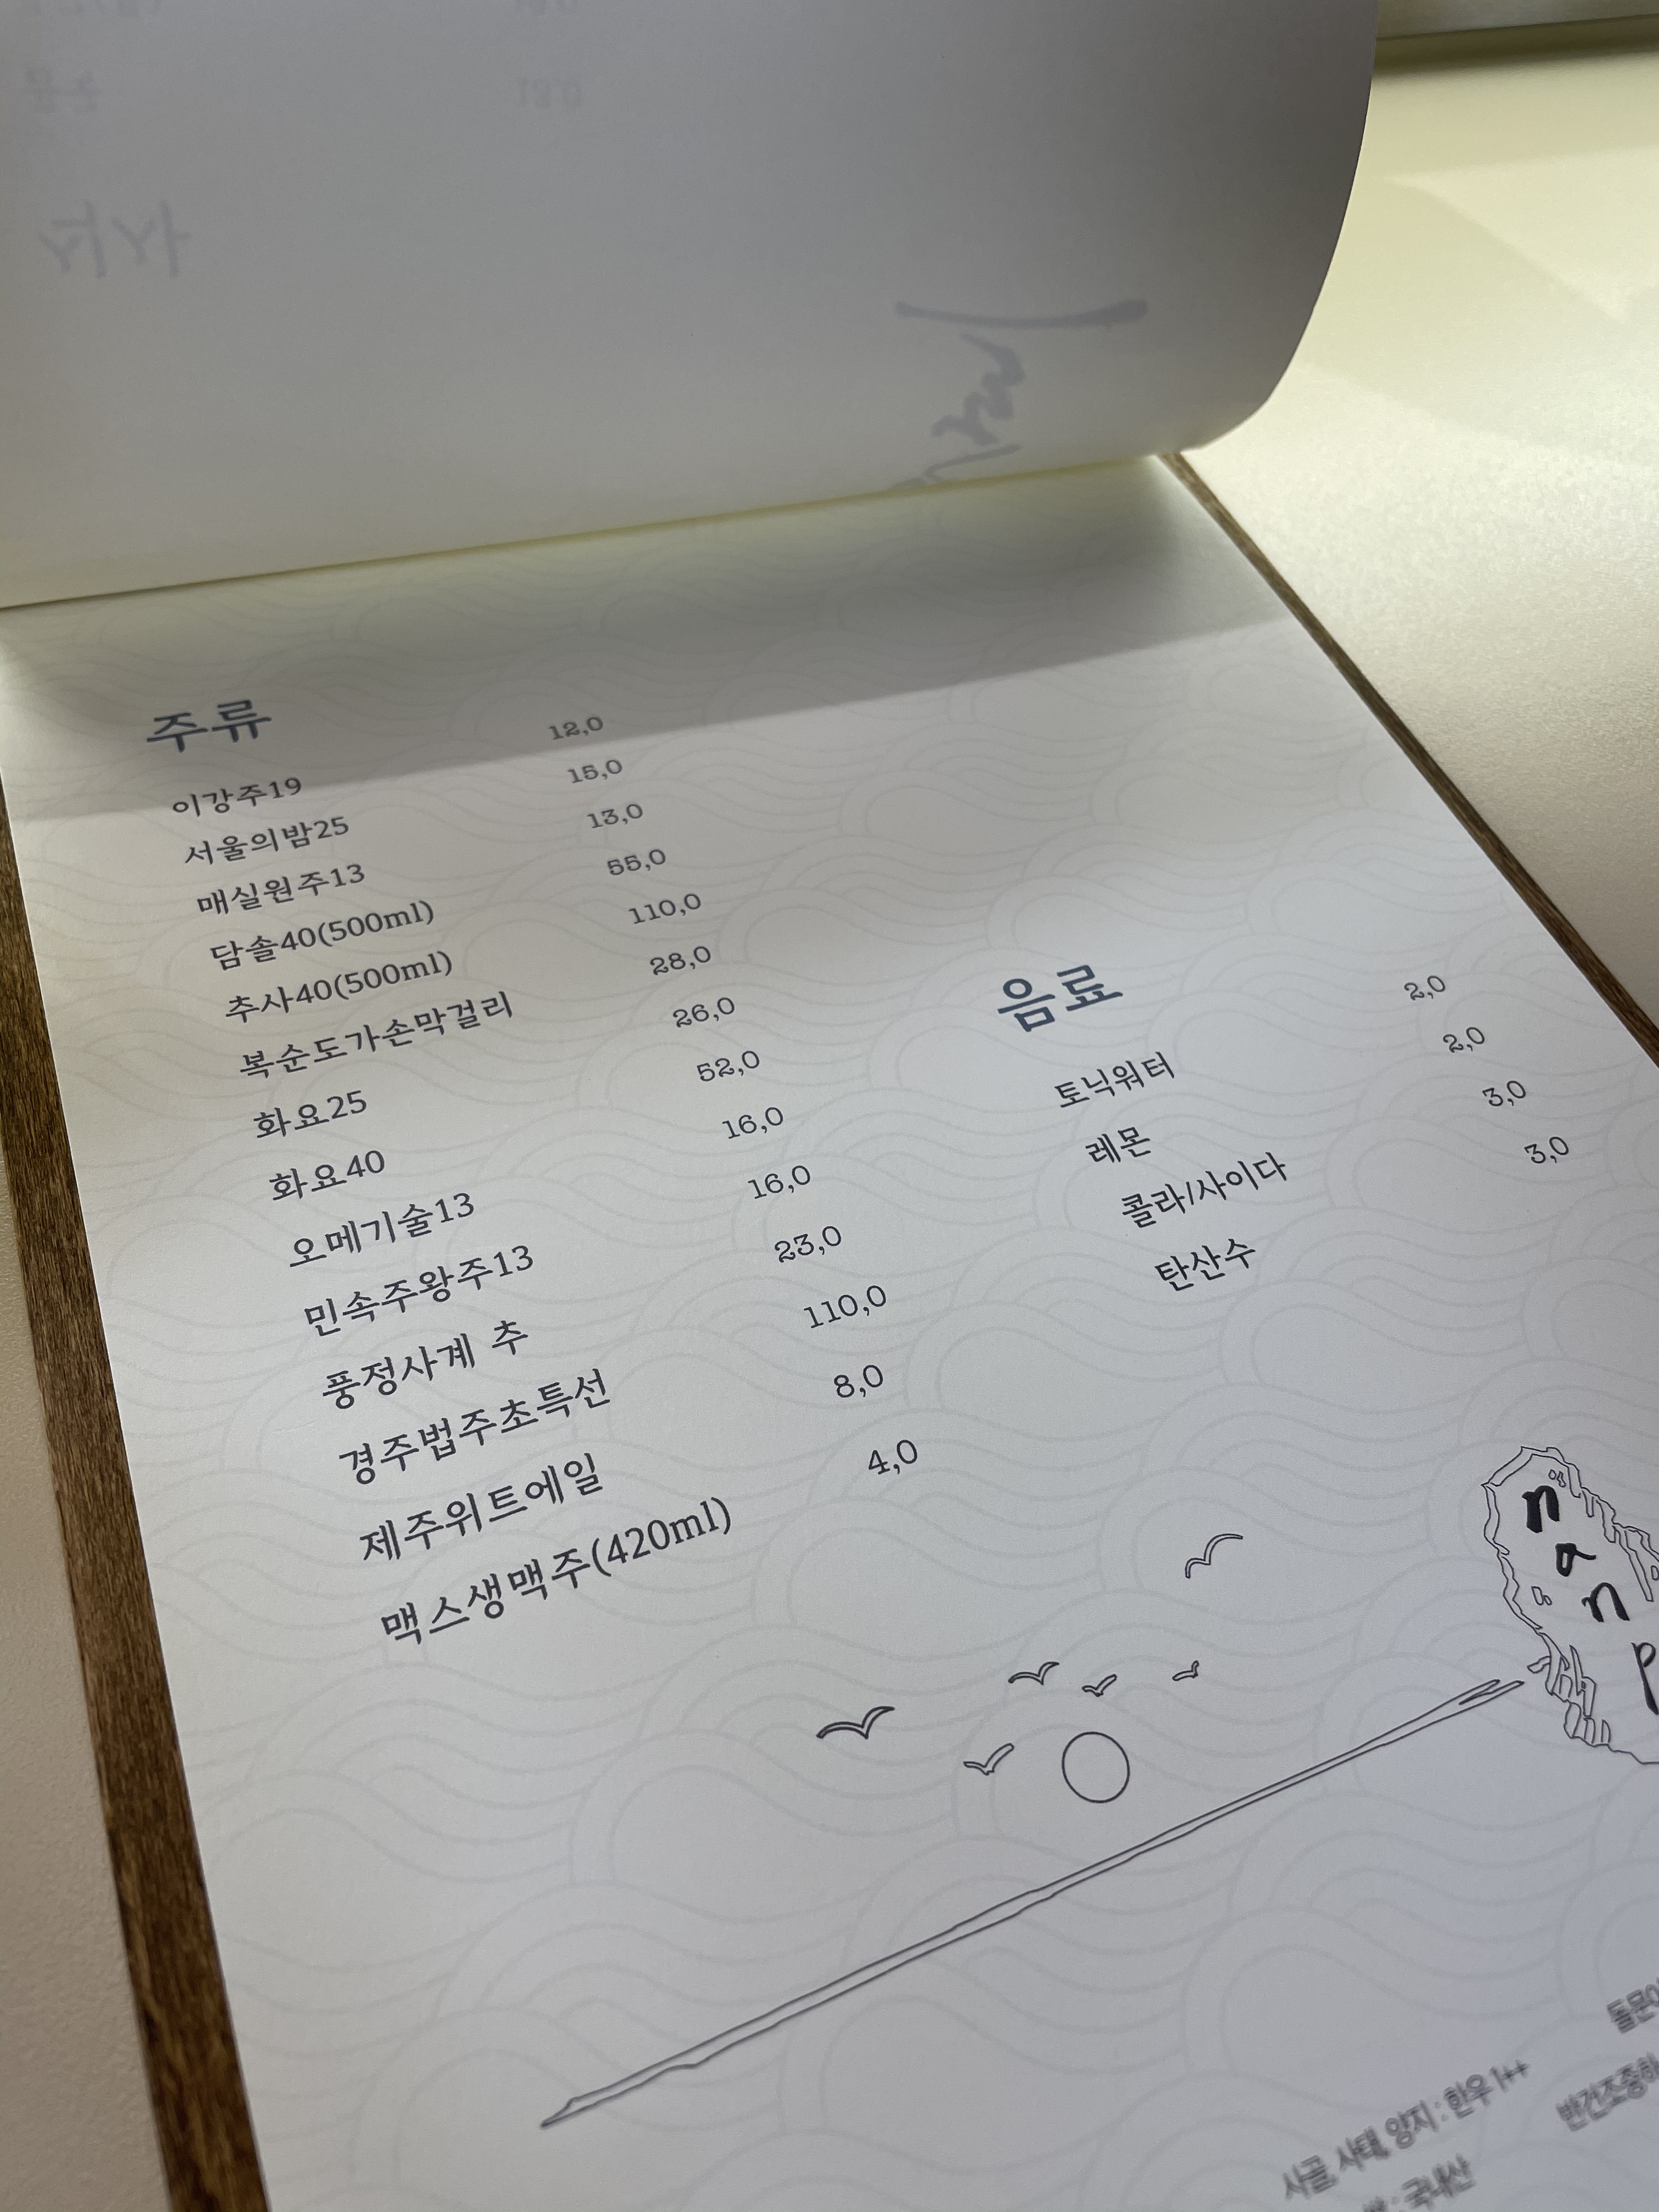 주류
이강주19 12,0
서울의밤25 15,0
매실원주13 13,0
담솔40(500ml) 55,0
추사40(500ml) 110,0
복순도가손막걸리 28,0
화요25 26,0
화요40 52,0
오메기술13 16,0
민속주왕주13 16,0
풍정사계 추 23,0
경주법주초특선 110,0
제주위트에일 8,0
맥스생맥주(420ml) 4,0
음료
토닉워터 2,0
레몬 2,0
콜라/사이다 3,0
탄산수 3,0
n
a
n
p
사골, 사태, 양지 : 한우 1++
: 국내산